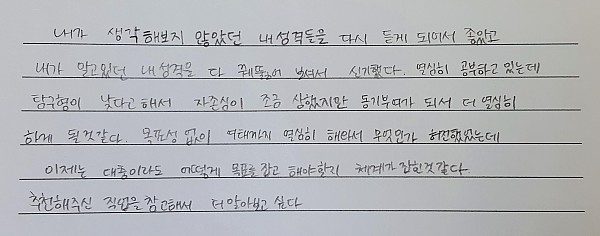 내가 생각해보지 않았던 내성격들을 다시 듣게 되어서 좋았고
내가 알고있던 내성격을 다 꿰뚫어 보셔서 신기했다. 열심히 공부하고 있는데
탐구형이 낮다고해서 자존심이 조금 상했지만 동기부여가 되서 더 열심히
하게 될것같다. 목표성 없이 여태까지 열심히 해와서 무엇인가 허전했었는데
이제는 대충이라도 어떻게 목표를 잡고 해야할지 체계가 잡힌것 같다
추천해주신 직업을 참고해서 더 알아보고 싶다